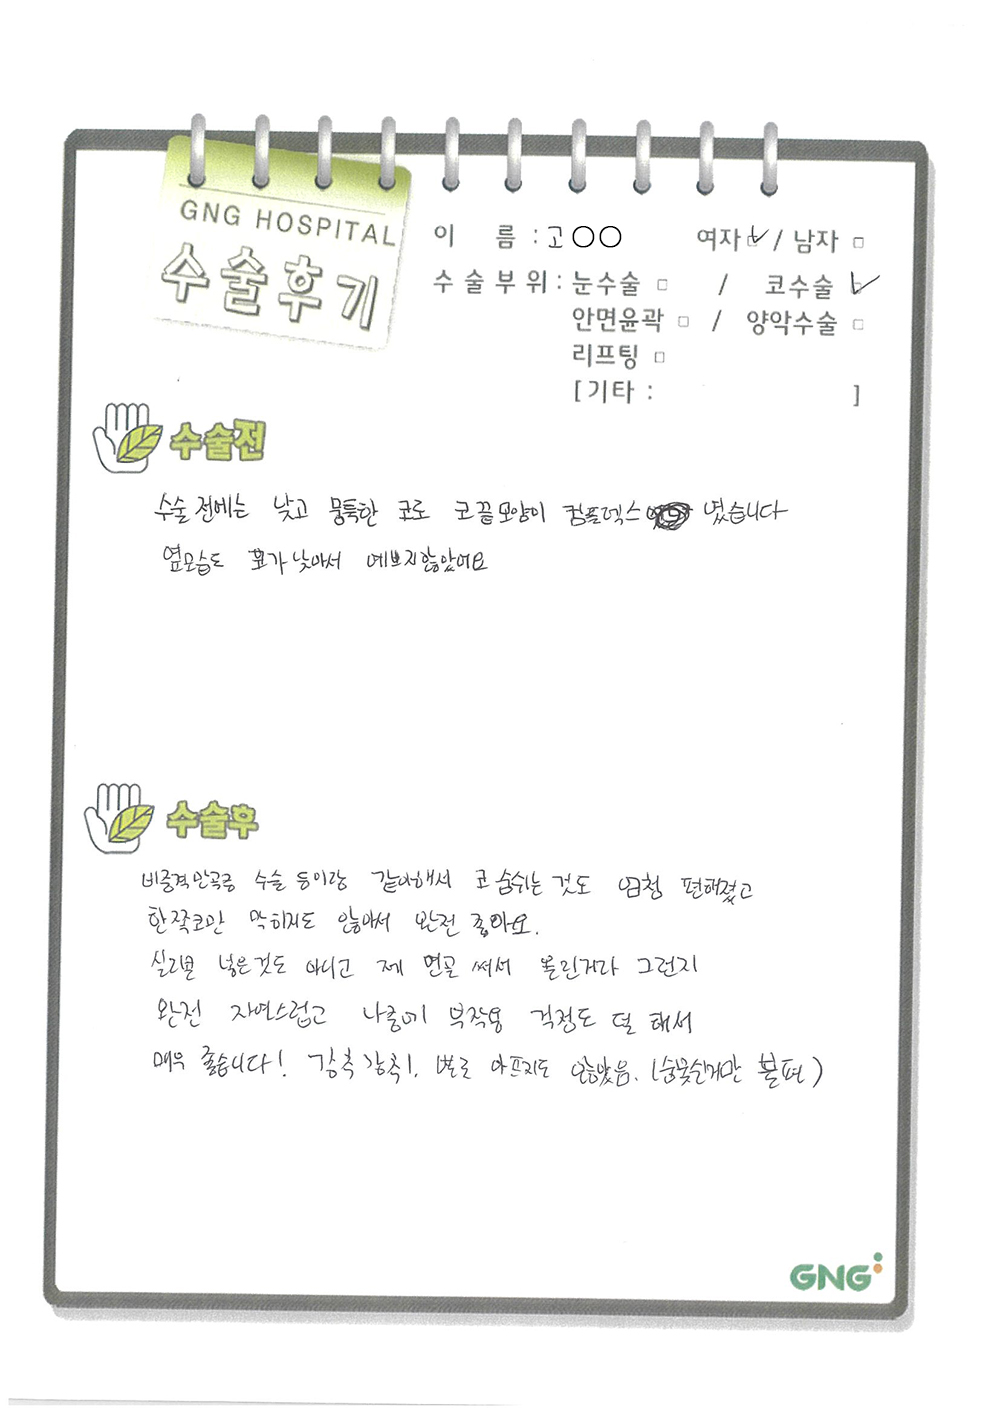 GNG HOSPITAL
수술후기
이 름 : 고○○ 여자 / 남자 □
수술부위 : 눈수술 □ / 코수술
안면윤곽 □ / 양악수술 □
리프팅 □
[기타 : ]
수술전
수술 전에는 낮고 뭉툭한 코로 코끝모양이 컴플렉스 였습니다
옆모습도 코가 낮아서 예쁘지않았어요
수술후
비중격만곡증 수술 등이랑 같이해서 코 숨쉬는 것도 엄청 편해졌고
한쪽코만 막히지도 않아서 완전 좋아요.
실리콘 넣은것도 아니고 제 연골 써서 올린거라 그런지
완전 자연스럽고 나중에 부작용 걱정도 덜 해서
매우 좋습니다! 강축강축!. 별로 아프지도 않았음. (숨못쉰거만 불편)
GNG